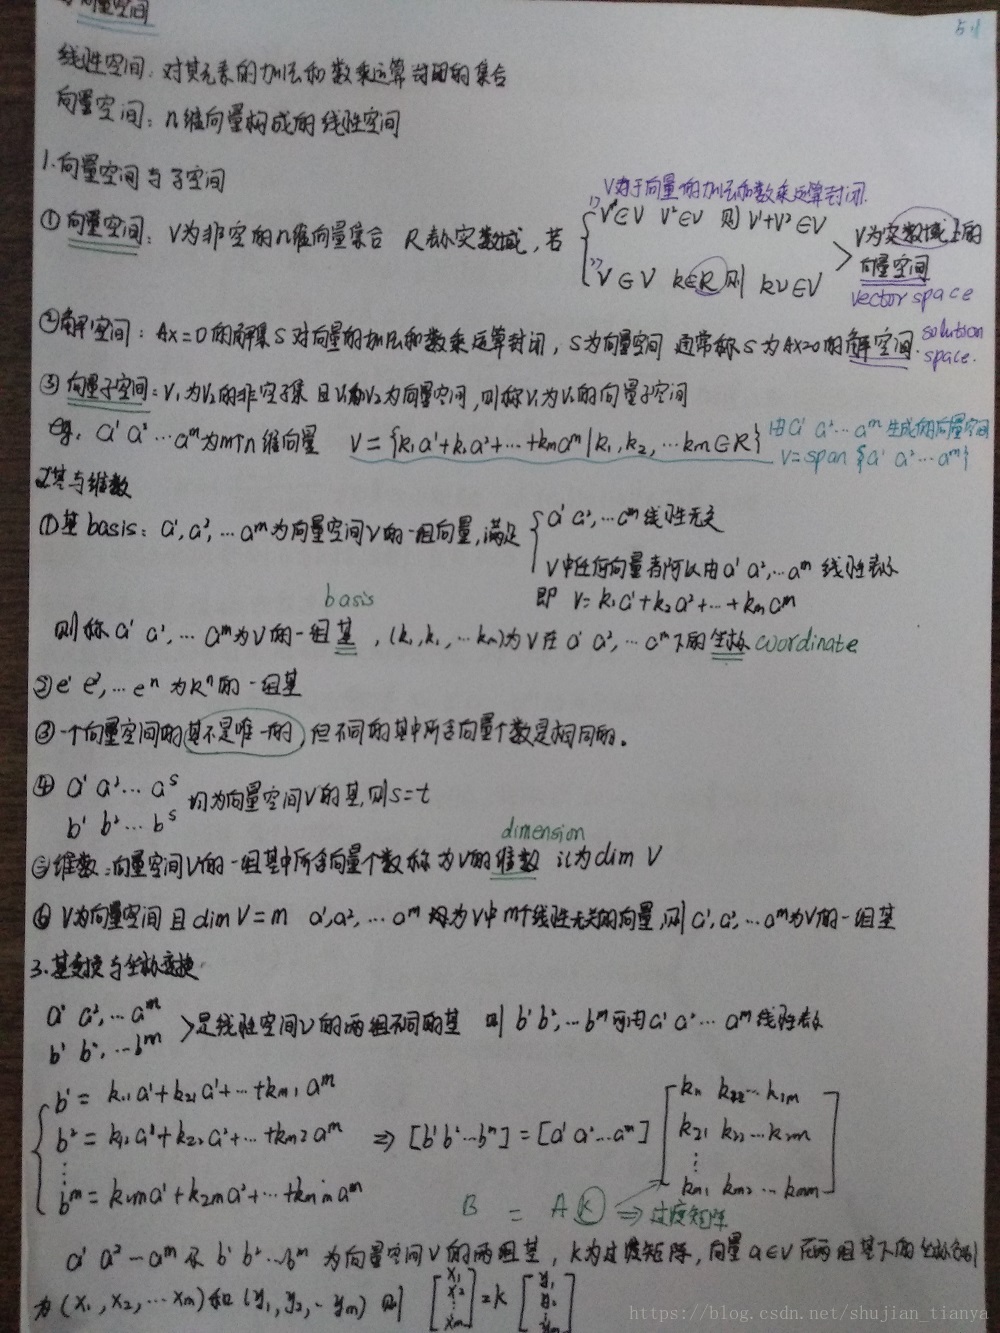 向量空间
51
线性空间：对其元素的加法和数乘运算封闭的集合
向量空间：n维向量构成的线性空间
1.向量空间与子空间
V对于向量的加法和数乘运算封闭.
① 向量空间：V为非空的n维向量集合 R表示实数域，若
1) V¹∈V V²∈V 则 V¹+V²∈V
2) V∈V k∈R 则 kV∈V
V为实数域上的
向量空间
vector space
②解空间：Ax=0的解集S对向量的加法和数乘运算封闭，S为向量空间 通常称S为Ax=0的解空间. solution
space.
③ 向量子空间：V₁为V₂的非空子集 且V₁和V₂为向量空间，则称V₁为V₂的向量子空间
eg. a¹ a² ⋯ aᵐ为m个n维向量 V={k₁a¹+k₂a²+⋯+kₘaᵐ|k₁,k₂,⋯kₘ∈R} 由a¹ a² ⋯ aᵐ生成的向量空间
V=span {a¹ a² ⋯ aᵐ}
2.基与维数
①基basis：a¹,a²,⋯aᵐ为向量空间V的一组向量,满足
a¹ a²,⋯aᵐ线性无关
V中任何向量都可以由a¹ a²,⋯aᵐ 线性表示
即 V=k₁a¹+k₂a²+⋯+kₘaᵐ
basis
则称a¹ a²,⋯ aᵐ为V的一组基，(k₁,k₁,⋯kₘ)为V在a¹ a²,⋯aᵐ下的坐标 coordinate
②e¹ e²,⋯eⁿ 为Rⁿ的一组基
③一个向量空间的基不是唯一的，但不同的基中所含向量个数是相同的。
④ a¹ a² ⋯ aˢ
b¹ b² ⋯ bˢ
均为向量空间V的基,则s=t
dimension
⑤维数：向量空间V的一组基中所含向量个数称为V的维数 记为dim V
⑥ V为向量空间且dim V=m a¹,a²,⋯aᵐ 均为V中m个线性无关的向量,则a¹,a²,⋯aᵐ为V的一组基
3.基变换与坐标变换
a¹ a²,⋯aᵐ
b¹ b²,⋯bᵐ
是线性空间V的两组不同的基 则 b¹ b²,⋯bᵐ可由a¹ a² ⋯ aᵐ线性表示
b¹ = k₁₁a¹+k₂₁a²+⋯+kₘ₁aᵐ
b² = k₁₂a¹+k₂₂a²+⋯+kₘ₂aᵐ
⋮
bᵐ = k₁ₘa¹+k₂ₘa²+⋯+kₘₘaᵐ
⇒ [b¹ b² ⋯ bᵐ] = [a¹ a² ⋯ aᵐ]
k₁₁ k₂₂ ⋯ k₁ₘ
k₂₁ k₂₂ ⋯ k₂ₘ
⋮
kₘ₁ kₘ₂ ⋯ kₘₘ
B = A K ⇒ 过度矩阵
a¹ a² ⋯ aᵐ 及 b¹ b² ⋯ bᵐ 为向量空间V的两组基，K为过度矩阵，向量a∈V在两组基下的坐标分别
为(x₁,x₂,⋯xₘ)和(y₁,y₂,⋯yₘ) 则 [x₁ x₂ ⋮ xₘ] = K [y₁ y₂ ⋮ yₘ]
https://blog.csdn.net/shujian_tianya